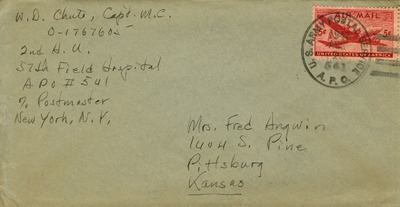 W.D. Chute, Capt. M.C.
O-1767605
2nd H.U.
57th Field Hospital
APO # 541
% Postmaster
New York, N.Y.
U.S. ARMY POSTAL SERVICE
541
A.P.O.
AIR MAIL
6¢ 6¢
UNITED STATES OF AMERICA
Mrs. Fred Angwin
1404 S. Pine
Pittsburg
Kansas